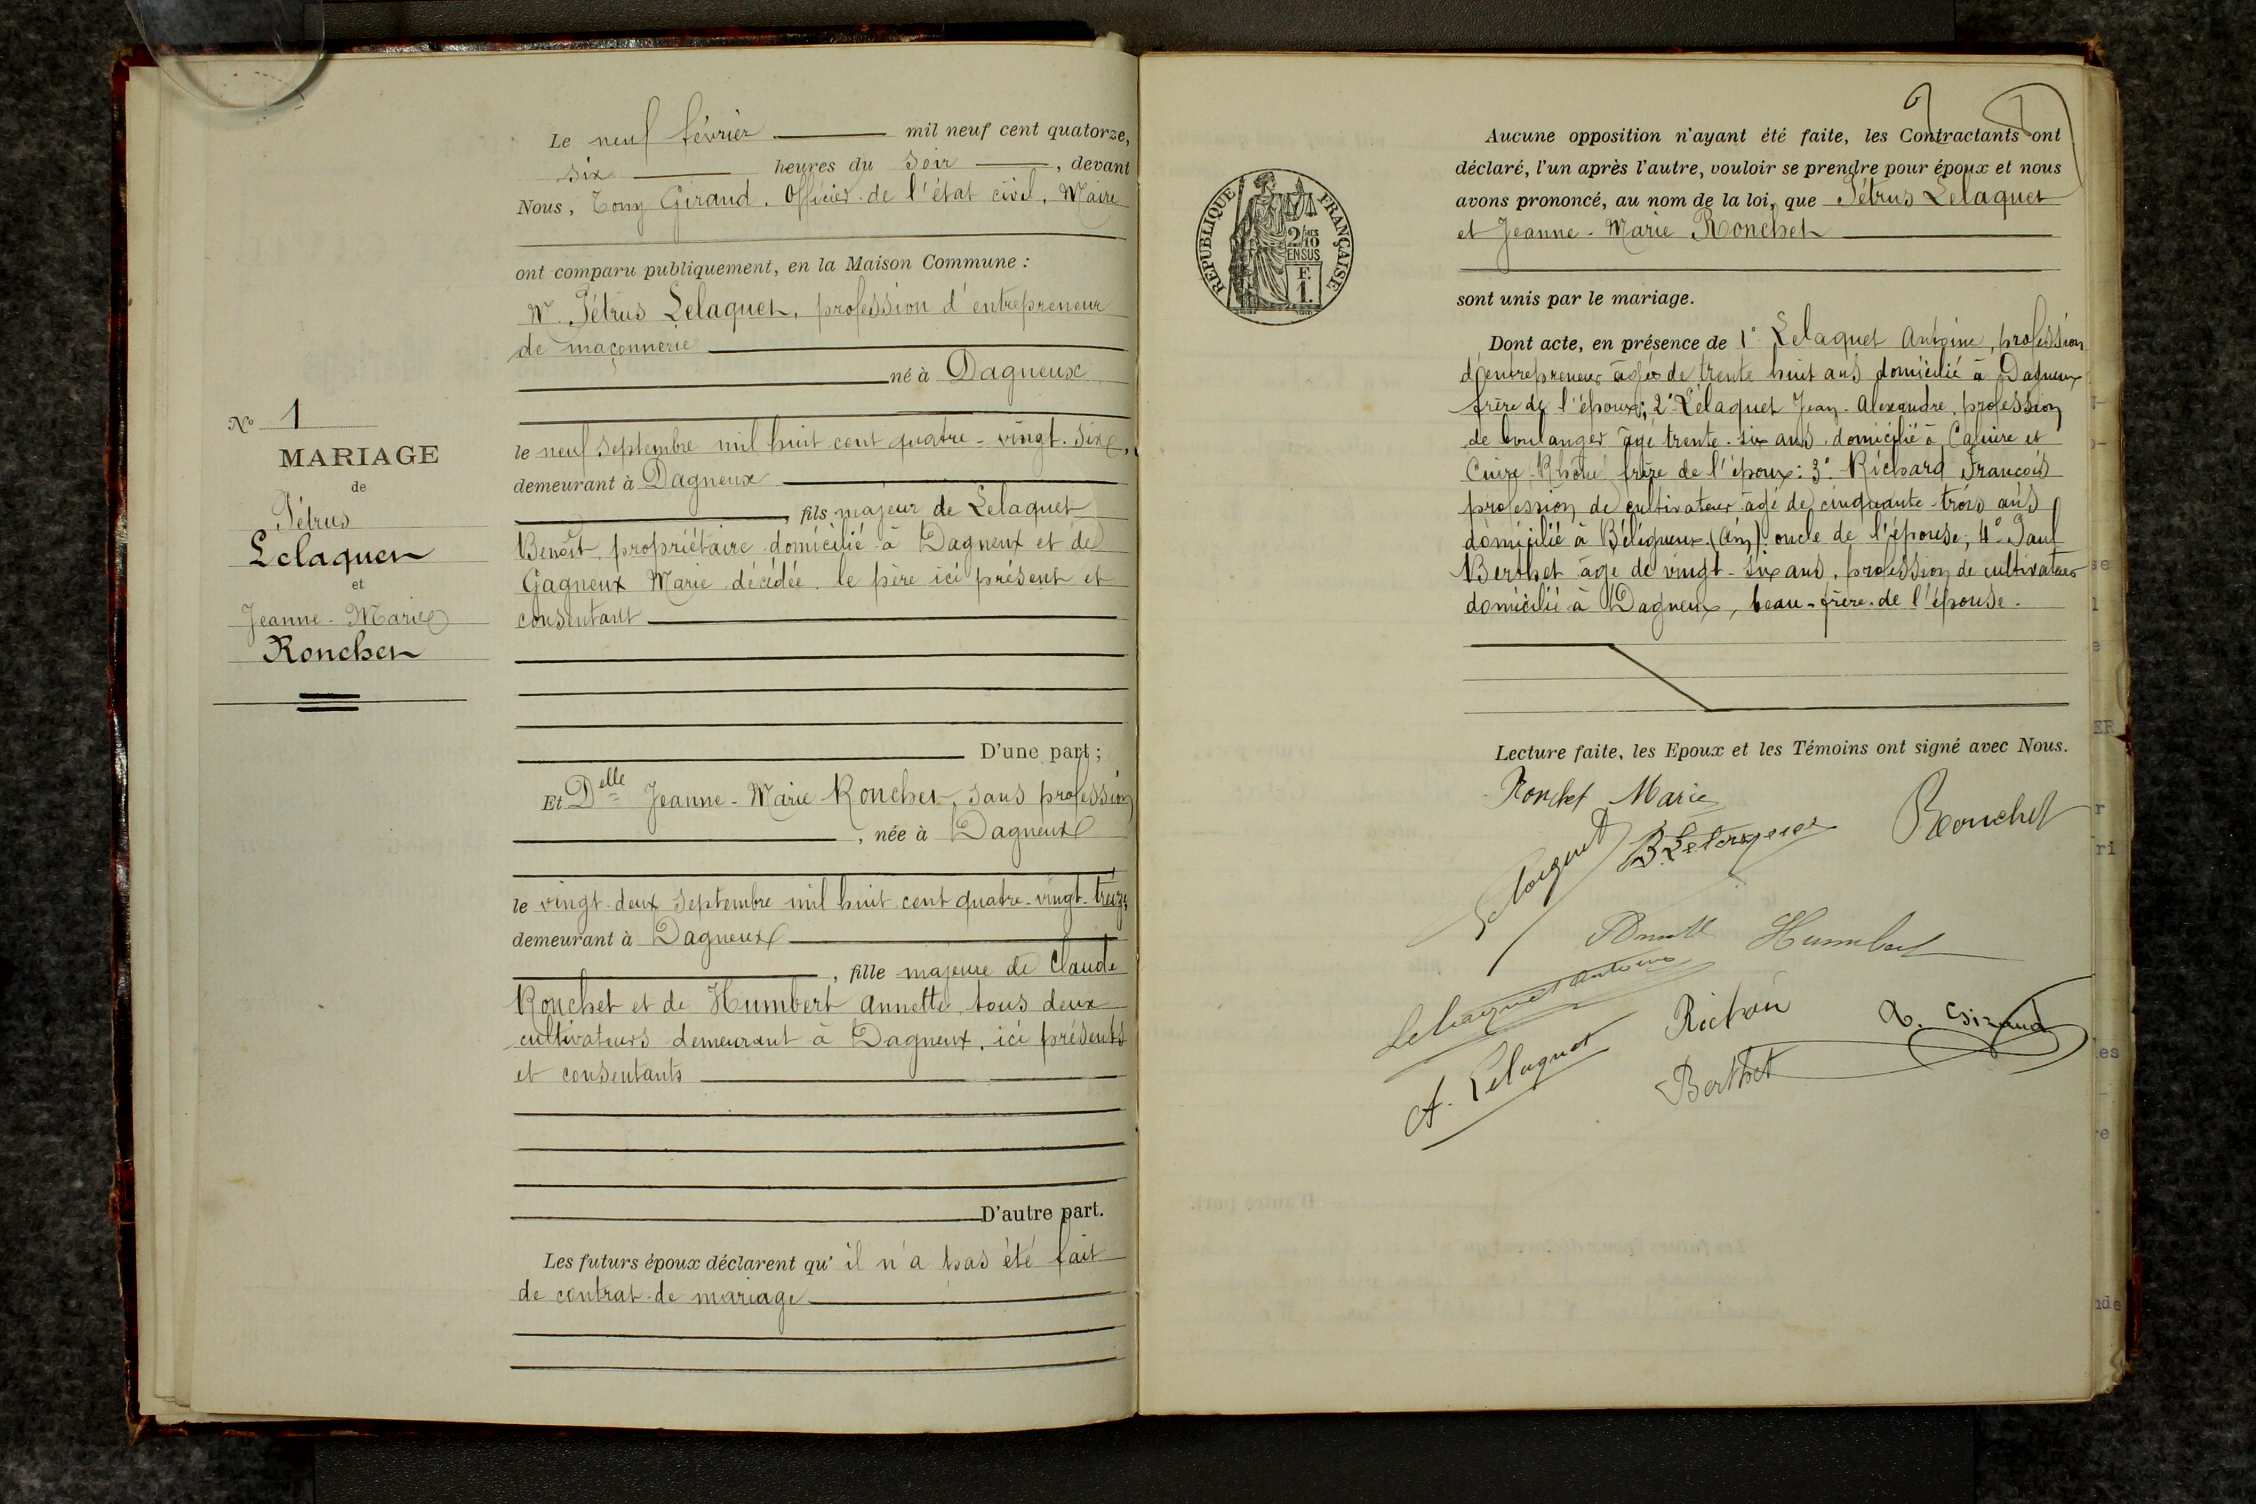 Le neuf février mil neuf cent quatorze,
six heures du soir, devant
Nous, Tony Girand, Officier de l'état civil, Maire
ont comparu publiquement, en la Maison Commune :
Mr. Pétrus Lelaquet, profession d'entrepreneur
de maçonnerie
né à Dagneux
le neuf septembre mil huit cent quatre-vingt-six,
demeurant à Dagneux
, fils majeur de Lelaquet
Benoît, propriétaire domicilié à Dagneux et de
Gagneux Marie décédée. le père ici présent et
consentant
D'une part ;
Et Delle Jeanne-Marie Ronchet, sans profession
, née à Dagneux
le vingt-deux septembre mil huit cent quatre-vingt-treize
demeurant à Dagneux
, fille majeure de Claude
Ronchet et de Humbert Annette, tous deux
cultivateurs demeurant à Dagneux, ici présents
et consentants
D'autre part.
Les futurs époux déclarent qu'il n'a pas été fait
de contrat de mariage
No 1
MARIAGE
de
Pétrus
Lelaquet
et
Jeanne-Marie
Ronchet
RÉPUBLIQUE FRANÇAISE
2/10
EN SUS
F.
1.
Aucune opposition n'ayant été faite, les Contractants ont
déclaré, l'un après l'autre, vouloir se prendre pour époux et nous
avons prononcé, au nom de la loi, que Pétrus Lelaquet
et Jeanne-Marie Ronchet
sont unis par le mariage.
Dont acte, en présence de 1° Lelaquet Antoine, profession
d'entrepreneur âgé de trente huit ans domicilié à Dagneux
frère de l'époux; 2° Lelaquet Jean-Alexandre, profession
de boulanger âgé trente-six ans, domicilié à Caluire et
Cuire Rhône frère de l'époux: 3° Richard François
profession de cultivateur âgé de cinquante-trois ans
domicilié à Béligneux (Ain) oncle de l'épouse; 4° Paul
Berthet âgé de vingt-six ans, profession de cultivateur
domicilié à Dagneux, beau-frère de l'épouse.
Lecture faite, les Epoux et les Témoins ont signé avec Nous.
Ronchet Marie
Lelaquet
B. Lelaquet
Ronchet
Humbert
Lelaquet Antoine
A. Lelaquet
Berthet
Girand